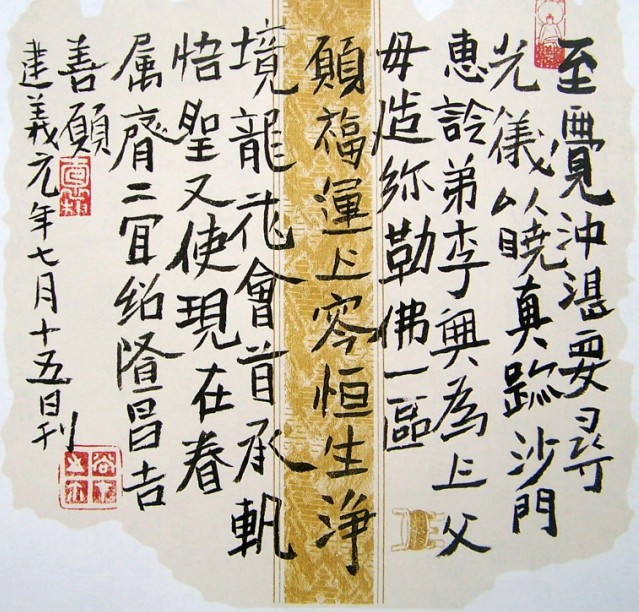 至覺沖湛要尋
光儀以曉真跡沙門
惠詅弟李興為亡父
母造弥勒佛一區
願福運上零恒生淨
境龍花會首承軌
悟聖又使現在眷
属齊二宜紹隆昌吉
善願
建義元年七月十五日刊